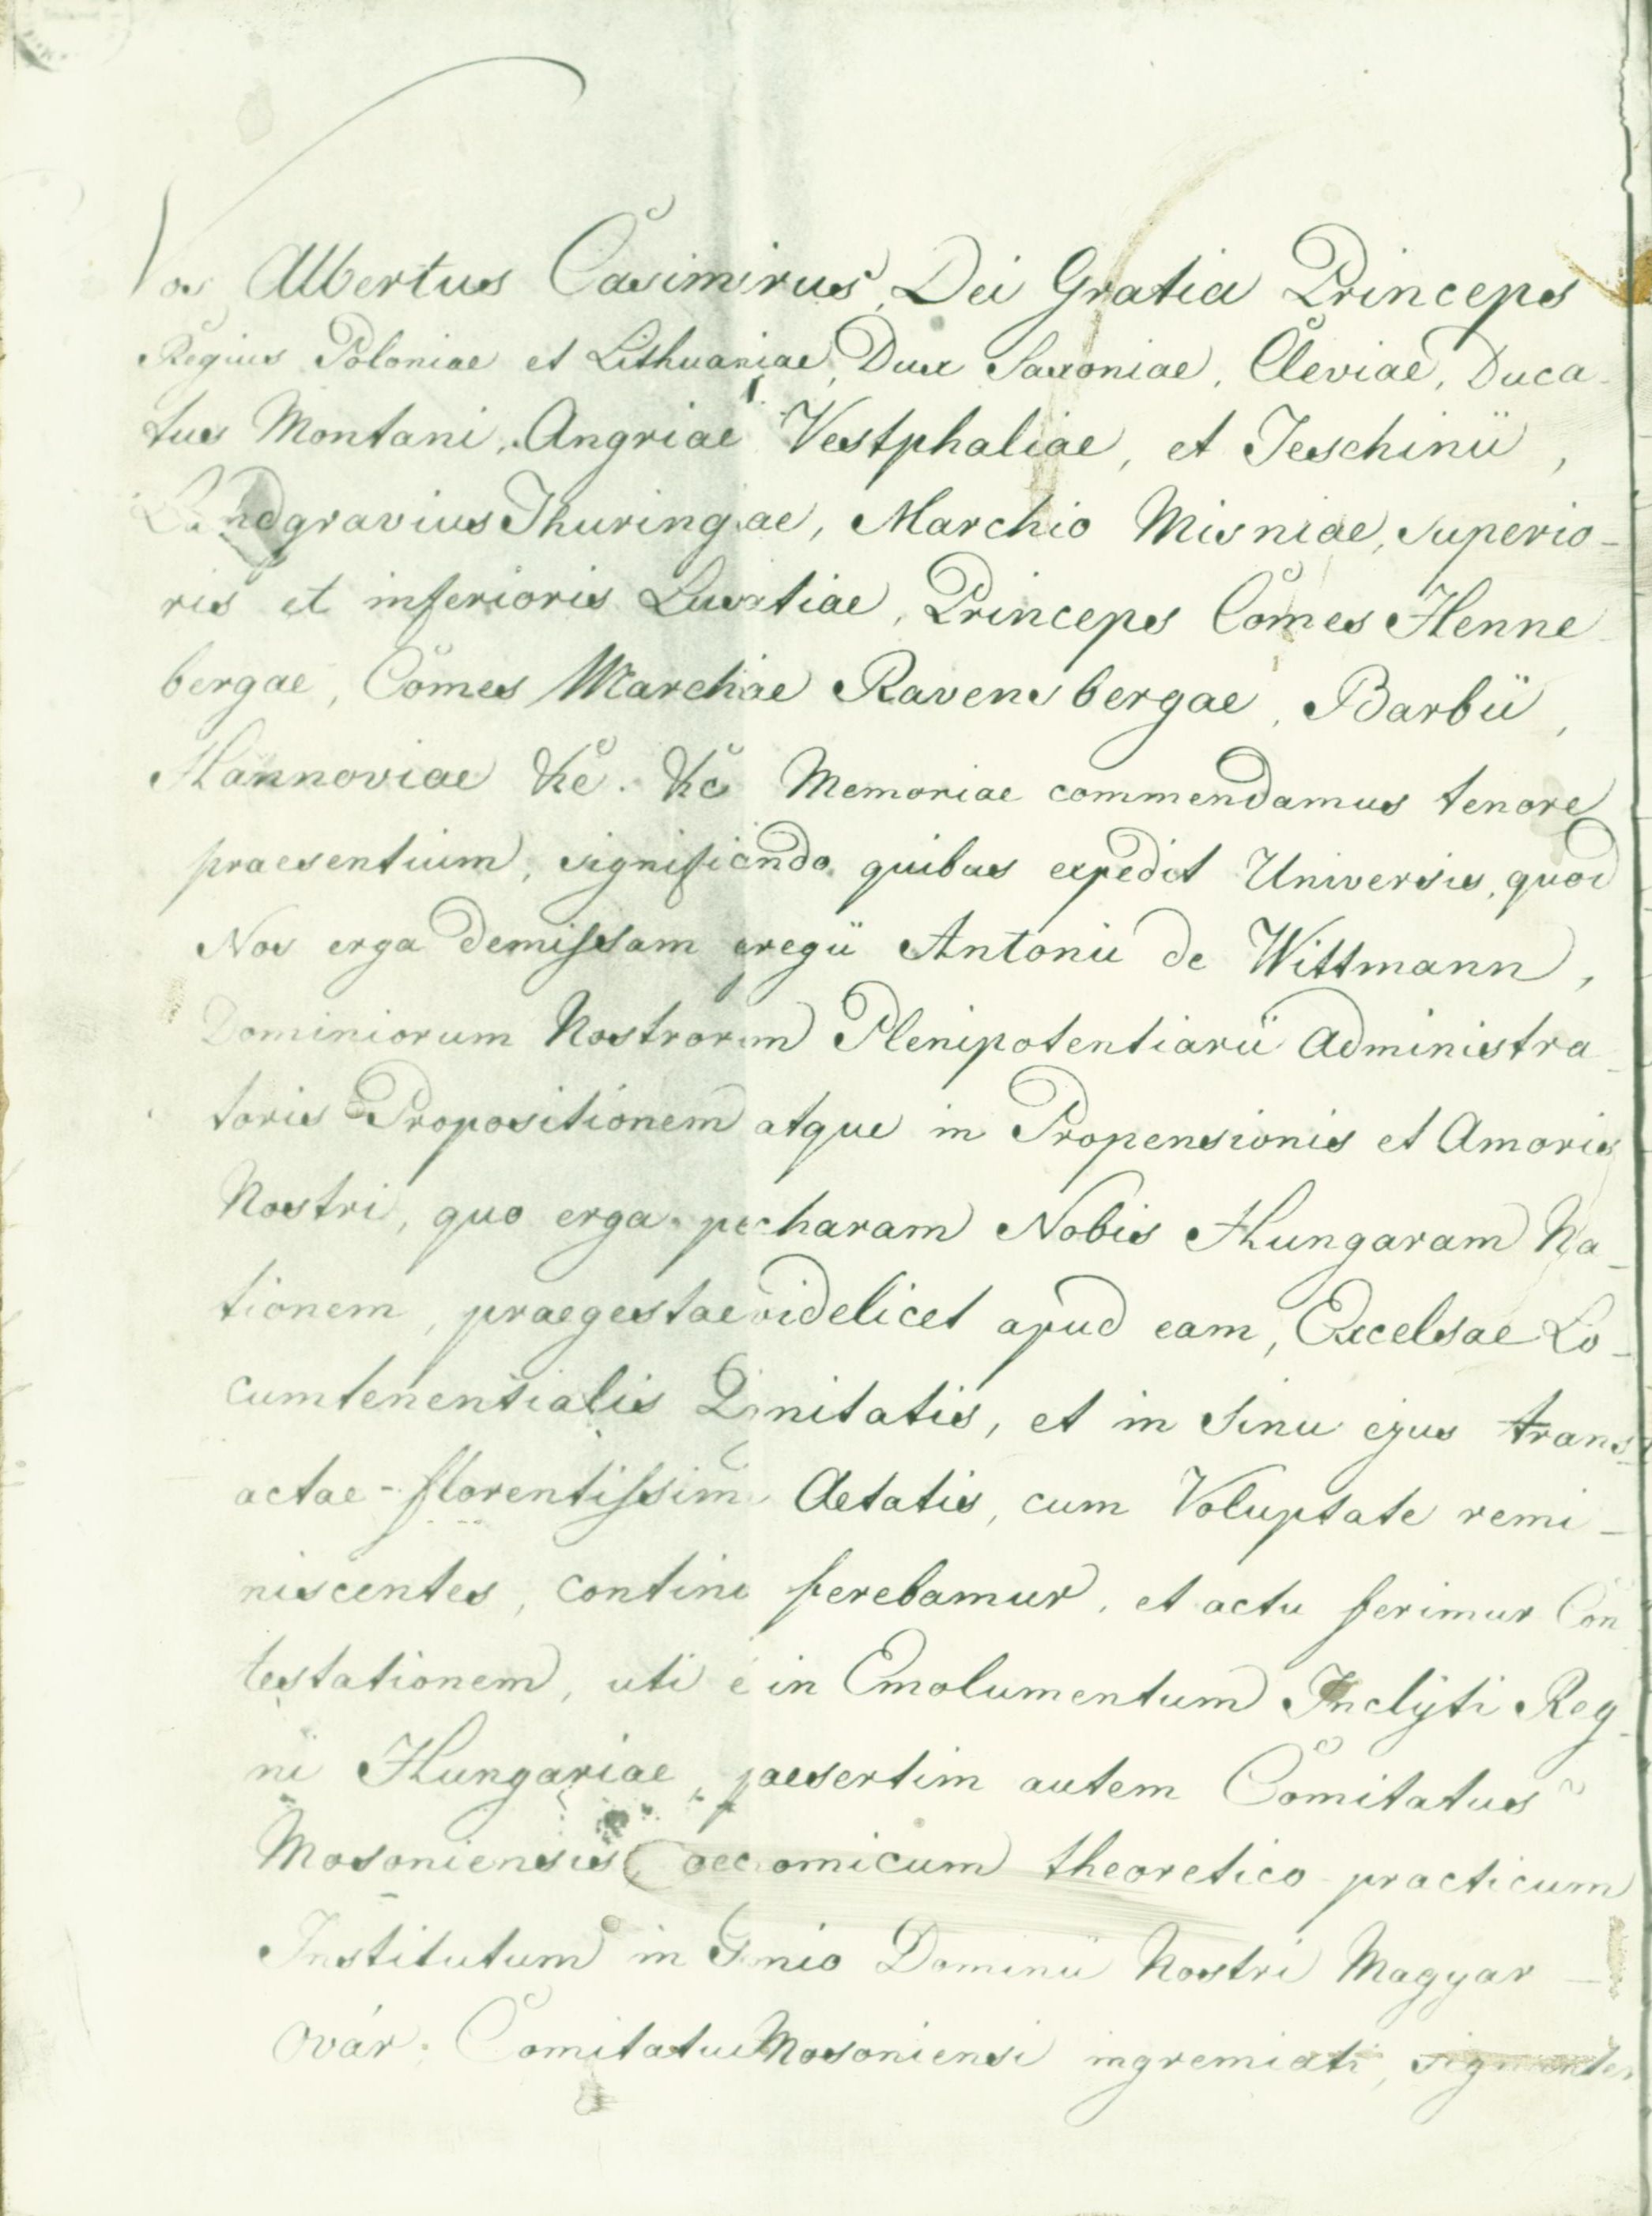 Nos Albertus Casimirus, Dei Gratia Princeps
Regius Poloniae et Lithuaniae, Dux Saxoniae, Cleviae, Duca-
tus Montani, Angriae Vestphaliae, et Teschinii,
Landgravius Thuringiae, Marchio Misniae, superio-
ris et inferioris Lusatiae, Princeps Comes Henne
bergae, Comes Marchiae Ravensbergae, Barbii,
Hannoviae &c. &c Memoriae commendamus tenore
praesentium, significando quibus expedit Universis, quod
Nos erga demissam egregii Antonii de Wittmann,
Dominiorum Nostrorum Plenipotentiarii Administra-
toris Propositionem atque in Propensionis et Amoris
Nostri, quo erga percharam Nobis Hungaram Na-
tionem, praegestae videlicet apud eam, Excelsae Lo-
cumtenentialis Dignitatis, et in Sinu ejus trans-
actae florentissimae Aetatis, cum Voluptate remi-
niscentes, continuo ferebamur, et actu ferimur Con
testationem, uti et in Emolumentum Inclÿti Reg-
ni Hungariae, praesertim autem Comitatus
Mosoniensis oeconomicum theoretico-practicum
Institutum in Gremio Dominii Nostri Magyar-
Ovár, Comitatui Mosoniensi ingremiati,